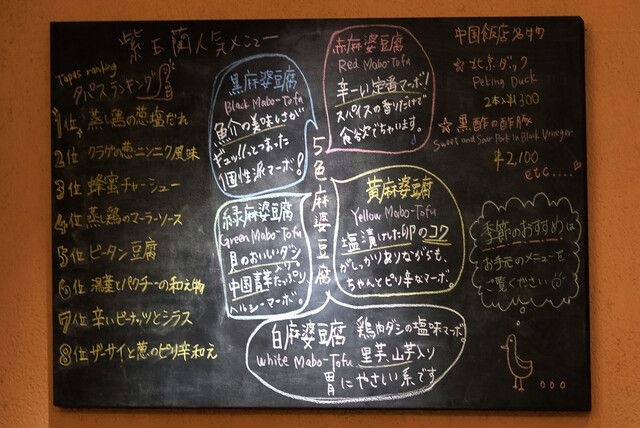 紫玉蘭人気メニュー
Tapas ranking
タパスランキング
1位 蒸し鶏の葱塩だれ
2位 クラゲの葱ニンニク風味
3位 蜂蜜チャーシュー
4位 蒸し鶏のマーラーソース
5位 ピータン豆腐
6位 湯葉とパクチーの和え物
7位 辛いピーナッツとシラス
8位 ザーサイと葱のピリ辛和え
5色麻婆豆腐
黒麻婆豆腐
Black Mabo-Tofu
魚介の美味しさが
ギュッ!!っとつまった
個性派マーボ!
赤麻婆豆腐
Red Mabo-Tofu
辛ーい定番マーボ!
スパイスの香りだけで
食欲でちゃいます。
緑麻婆豆腐
Green Mabo-Tofu
貝のおいしいダシ
入り。
中国青菜たっぷり、
ヘルシーマーボ。
黄麻婆豆腐
Yellow Mabo-Tofu
塩漬けした卵のコク
がしっかりありながらも、
ちゃんとピリ辛なマーボ。
白麻婆豆腐 鶏肉ダシの塩味マーボ。
White Mabo-Tofu 里芋、山芋入り
胃にやさしい系です
中国飯店名物
☆北京ダック
Peking Duck
☆黒酢の酢豚
Sweet and Sour Pork in Black Vinegar
¥2,100
etc....
季節のおすすめは
お手元のメニューを
ご覧ください